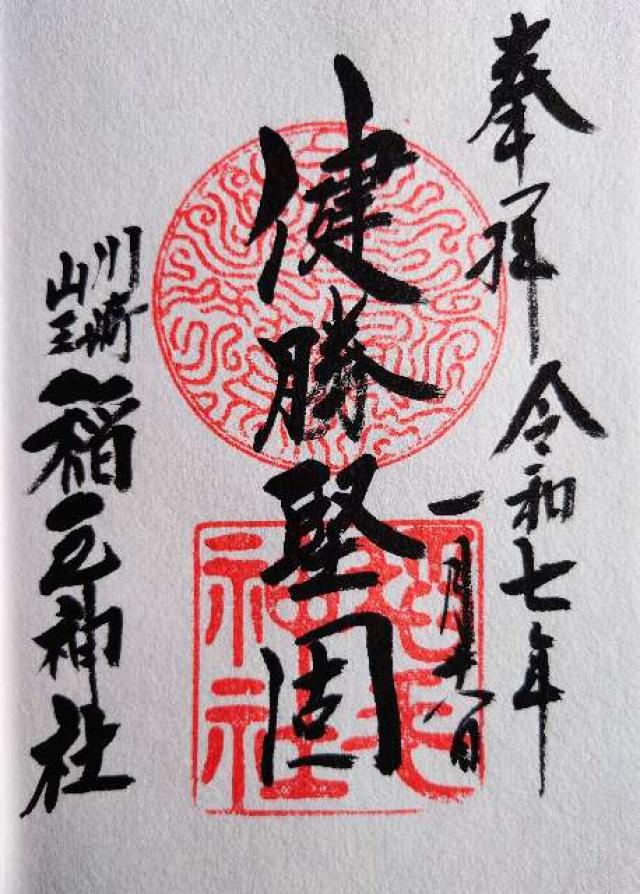 奉拝
令和七年
一月十八日
健勝堅固
川崎
山王
稲毛神社
稲毛
神社